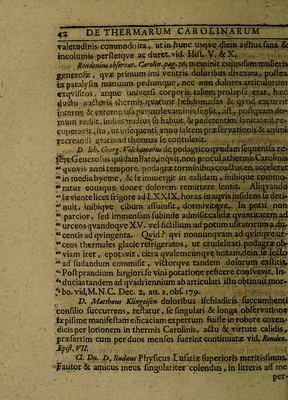 42 DE THERMARUM CAROLINARUM
valetudinis commodo ita, ut in hunc usque diem adhuc sana &
incolumis perstetque ac duret. vid. Hist. V. & X.
Rendenius observat. Carolin. pag. meminit cujusdam mulieris
generosæ, quæ primum imi ventris doloribus divexata, postea
in paralysin manuum pedumque, nec non dolores articulorum
exquisitos, atque universi corporis tabem prolapsa erat, hæc
ductu auctoris thermis quatuor hebdomadas & quod excurrit
interne & externe usa primum levaminis sensit, ast, postquam do-
mum rediit, indies melius se habuit, & pedetentim sanitatem re-
cuperavit, ita, ut insequenti anno saltem præservationis & animi
recreandi gratia ad thermas se contulerit.
D. Joh. Georg. Volckamerus de podagrico quodam sequentia re-
fert: Generosus quidam Baro, inqvit, non procul a thermis Carolinis
" qvovis anci tempore podagræ torminibus coactus en, accelerat
" in media hyeme, & se immergit in calidam, inibique commo-
" ratus eousque donec dolorem remittere sentit. Aliqvando
" sæviente lices frigore ad LXXIX. horas in aqvis insidens se deti-
" nuit, inibique cibum assumsit, dormivitque. In potu non
" parcior, sed immensam subinde admisit calidæ quantitatem ad
" urceos quandoqve XV. vel fictilium ad potum usitatorum a du-
" centis ad qvingenta. Qvid? qvi nonnunqvam ad qvinqve sit
" ceos thermales glacie refrigeratos, ut crudelitati podagræ ob-
" viam iret, epotavit, citra qvalemcunqve notam, dein se lecto
" ad sudandum commisit, victorqve tandem dolorum exsistit.
" Post prandium largiori se vini potatione reficere consvevit. In-
" ducias tandem ad qvadriennium ab articulari isto obtinuit mor-
" bo. vid. M.N.C. Dec. 2. an. 2. obs. 179.
D. Matthæus Klingeisen doloribus ischiadicis succumbenti
consilio succurrens, testatur, se singulari & longa observatione
sæpissime manifestam efficaciam expertum fuisse in robore coxen-
dicis per lotionem in thermis Carolinis, actu & virtute calidis,
præsertim cum per duos menses fuerint continuatæ vid. Renden.
Epist. VII.
Cl. Dn. D. Rudaus Physicus Lusatiæ superioris meritissimus,
Fautor & amicus meus singulariter colendus, in litteris ad me
per-